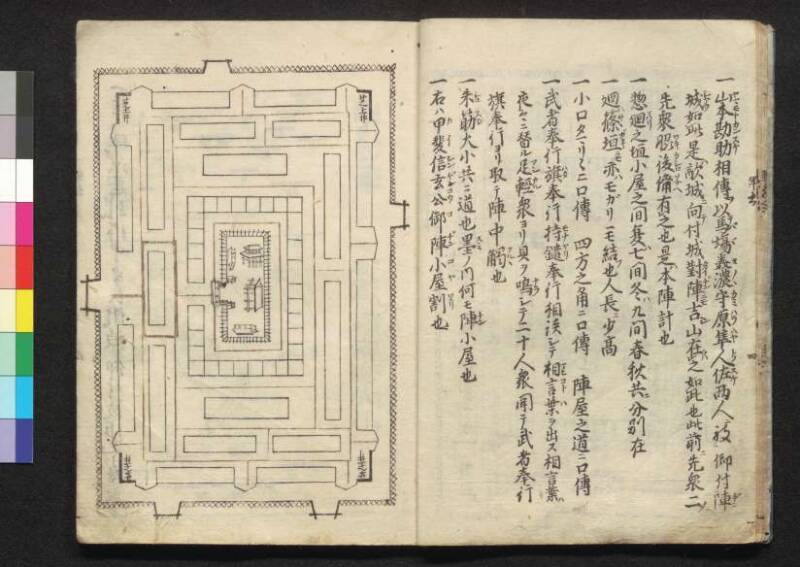 一山本勘助相傳ノ以馬場美濃守原隼人佐両人被仰付陣
城如此是敵城向付城對陣古山在之如此也此前先衆二
先衆脇後備有之也是本陣計也
一惣廻之垣小屋之間夏七間冬九間春秋共分別在
一廻篠垣モ亦モガリニモ結也人長ニ少高
一小口タニリミニ口傳 四方之角ニ口傳 陣屋之道ニ口傳
一武者奉行旗奉行持鑓奉行相談シテ相言葉ヲ出ス相言葉
夜々ニ替ル足軽衆ヨリ貝ヲ鳴シテ二十人衆聞テ武者奉行
旗奉行ヨリ取テ陣中觸也
一朱筋大小共ニ道也墨ノ内何モ陣小屋也
一右ハ甲斐信玄公御陣小屋割也